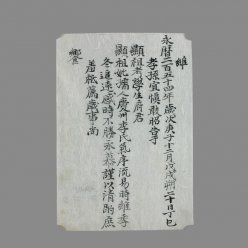 維
永曆二百五十四年歲次庚子十二月戊戌朔二十日丁巳
孝孫宜愼敢昭告于
顯祖考學生府君
顯祖妣孺人慶州李氏氣序流易時維季
冬追遠感時不勝永慕謹以清酌庶
羞祗薦歲事尙
饗